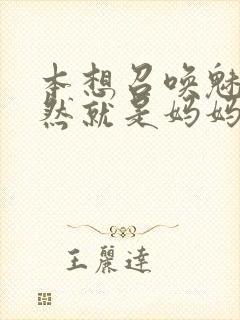 本想召唤魅
然就是妈妈
王麗達